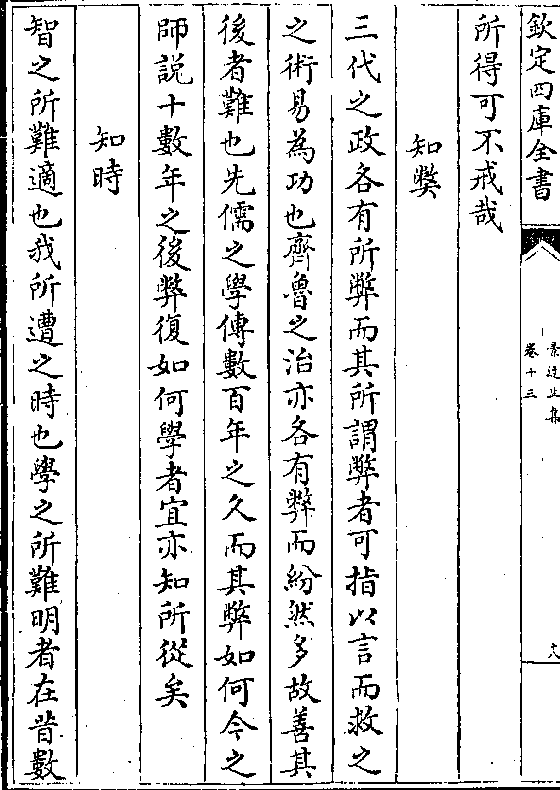 欽定四庫全書
景迂生集
卷十三
所得可不戒哉
知獘
三代之政各有所弊而其所謂弊者可指以言而救之
之術易為功也齊魯之治亦各有弊而紛然多故善其
後者難也先儒之學傳數百年之久而其弊如何今之
師說十數年之後弊復如何學者宜亦知所從矣
知時
智之所難適也我所遭之時也學之所難明者在昔數